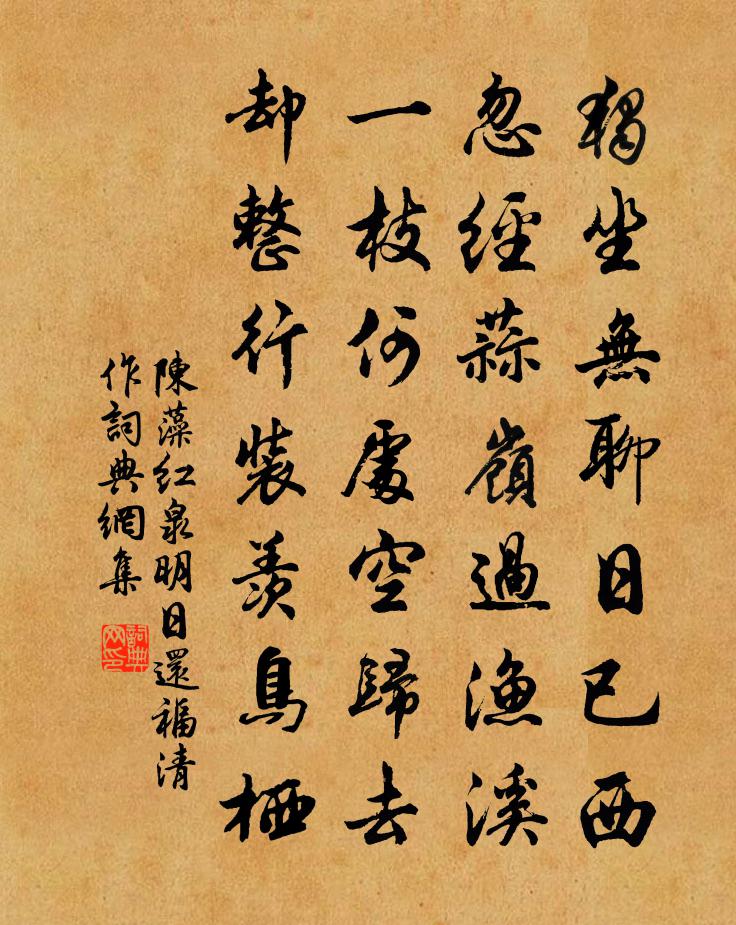 獨坐無聊日已西
忽經蒜嶺過漁溪
一枝何處空歸去
却整行裝羨鳥栖
陳藻紅泉明日還福清
作詞典網集
詞典網印